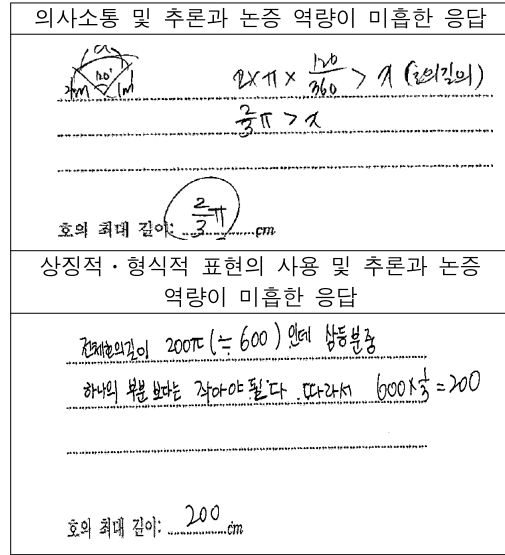 의사소통 및 추론과 논증 역량이 미흡한 응답
a
120°
1m
2×π×120/360 > x (호의길이)
2/3π > x
호의 최대 길이: 2/3π cm
상징적·형식적 표현의 사용 및 추론과 논증
역량이 미흡한 응답
전체호의길이 200π(≒600) 인데 삼등분중
하나의 부분 보다는 작아야 된다. 따라서 600×1/3=200
호의 최대 길이: 200 cm